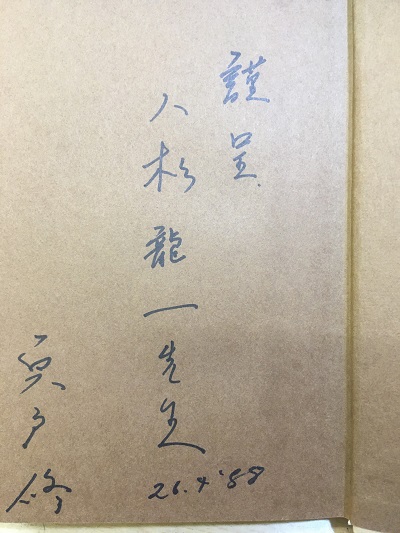 謹呈
八杉龍一先生
26.4.'88
宍戸修